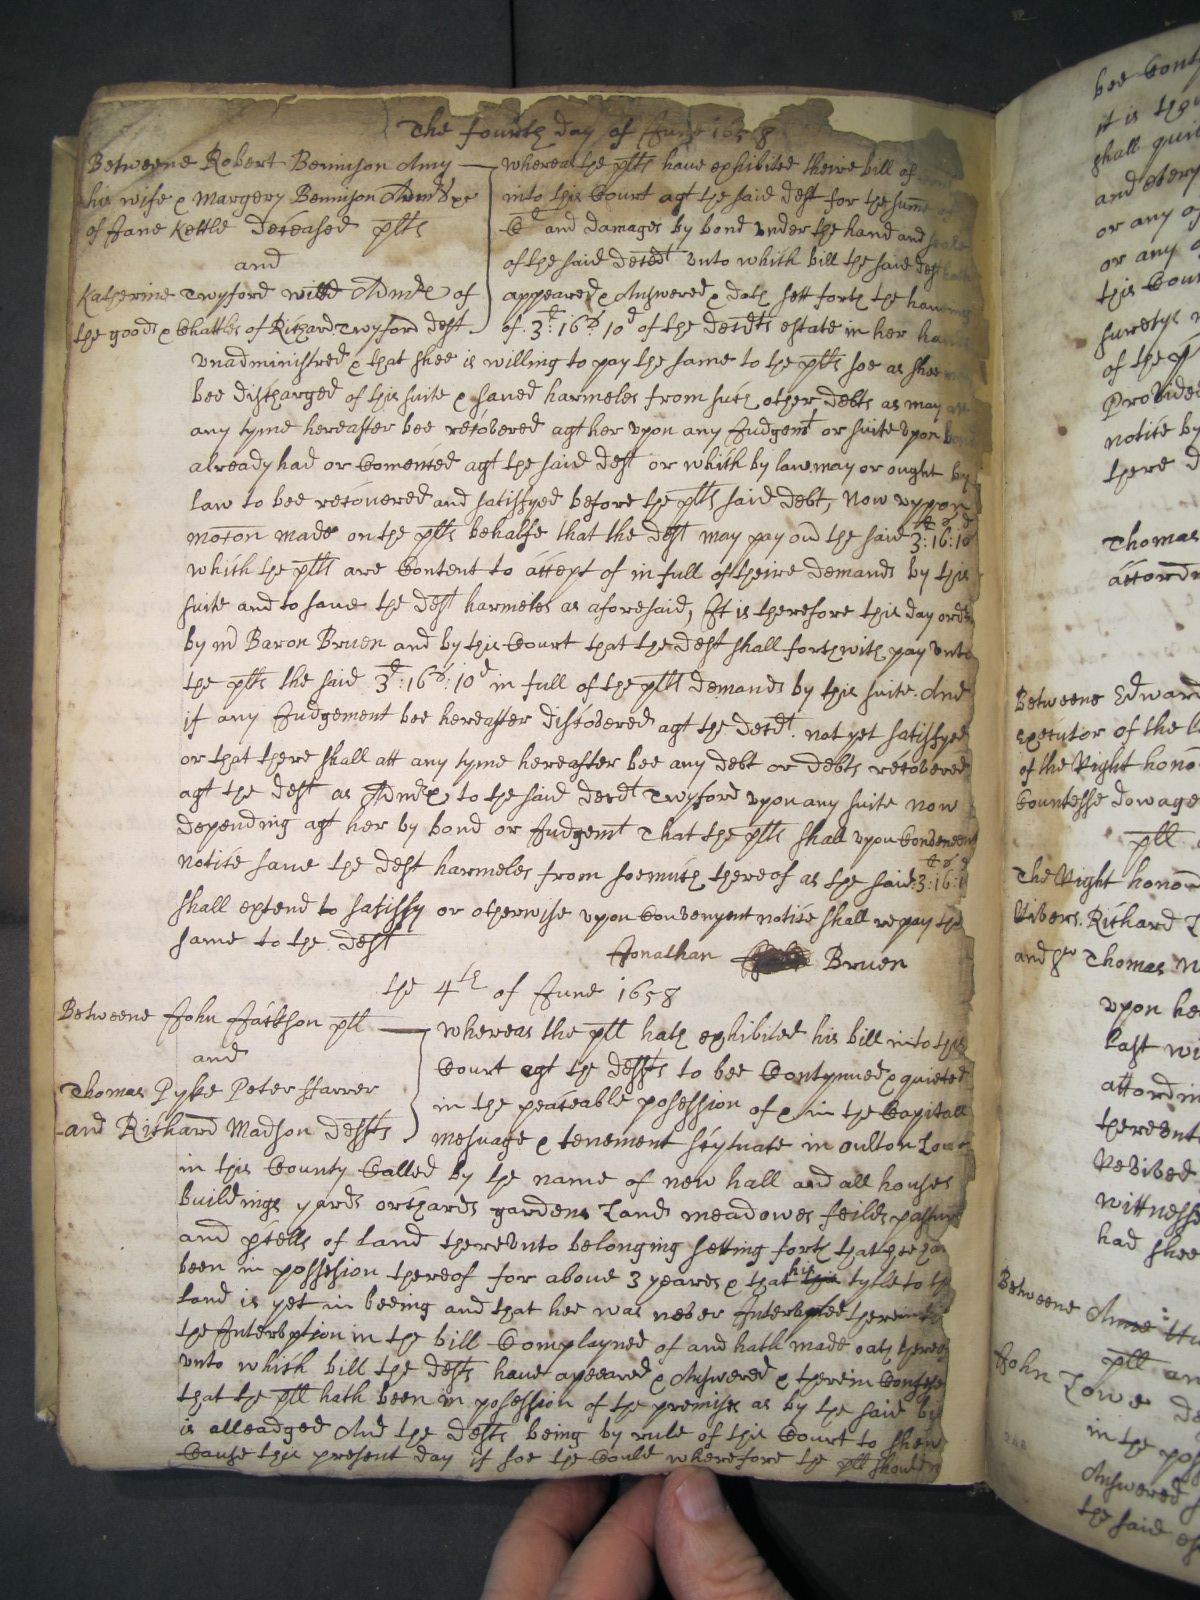 The fourth day of June 1658
Betweene Robert Bennison Amy
his wife & Margery Bennison Admrs &c
of Jane Kettle deceased plts
and
Katherine Twyford widd Admx of
the goods & Chattles of Richard Twyford deft
whereas the plts have exhibited theire bill of
into this Court agt the said deft for the sume of
and damages by bond under the hand and seale
of the said decedt unto which bill the said deft hath
appeared & Answered & doth sett forth the having
of 3li 16s 10d of the decdts estate in her hands
unadministred & that shee is willing to pay the same to the plts soe as shee may
bee discharged of this suite & saved harmeles from such other debts as may att
any tyme hereafter bee recovered agt her upon any Judgemt or suite upon bond
already had or Comenced agt the said deft or which by law may or ought by
law to bee recovered and satisfyed before the plts said debt, Now uppon
motion made on the plts behalfe that the deft may pay on the said 3li:16s:10d
which the plts are Content to accept of in full of theire demands by this
suite and to save the deft harmeles as aforesaid, It is therefore this day ordrd
by mr Baron Bruen and by this Court that the deft shall forthwith pay unto
the plts the said 3li:16s:10d in full of the plts demands by this suite. And
if any Judgement bee hereafter discovered agt the decdt. not yet satisfyed
or that there shall att any tyme hereafter bee any debt or debts recovered
agt the deft as Admx to the said decdt Twyford upon any suite now
depending agt her by bond or Judgemt That the plts shall upon Convenent
notice save the deft harmeles from soe much thereof as the said 3li:16s:1
shall extend to satisfy or otherwise upon Convenyent notice shall repay the
same to the deft
Jonathan Bruen
the 4th of June 1658
Betweene John Jackson plt
and
Thomas Pyke Peter ffarrer
and Richard Madson defts
whereas the plt hath exhibited his bill into this
Court agt the defts to bee Contynued & quieted
in the peaceable posession of & in the Capitall
mesuage & tenement scytuate in oulton Lowe
in this County Called by the name of new hall and all houses
buildings yards orchards gardens Lands meadowes feilds pasture
and pcells of land thereunto belonging setting forth that hee hath
been in possesion thereof for above 3 yeares & that his tytle to the
land is yet in beeing and that hee was never Interupted therein till
the Interuption in the bill Complayned of and hath made oath thereof
unto which bill the defts have appeared & Answered & therein Confesse
that the plt hath been in posession of the premises as by the said bill
is alleadged And the defts being by rule of this Court to shew
Cause this present day if soe the Could wherefore the plt should
bee Cont
it is thou
shall quie
and every
or any o
or any
this Cour
suretys
of the p
Provided
notice by
there
Thomas
accordin
Betweene Edward
executor of the l
of the Right hono
Countesse dowage
plt
The Right honor
Rivers. Richard
and Sr Thomas
upon he
last wi
accordin
thereunto
Revived
wittness
had shee
Betweene Anne
plt an
John Lowe de
in the pos
Answered
the said es